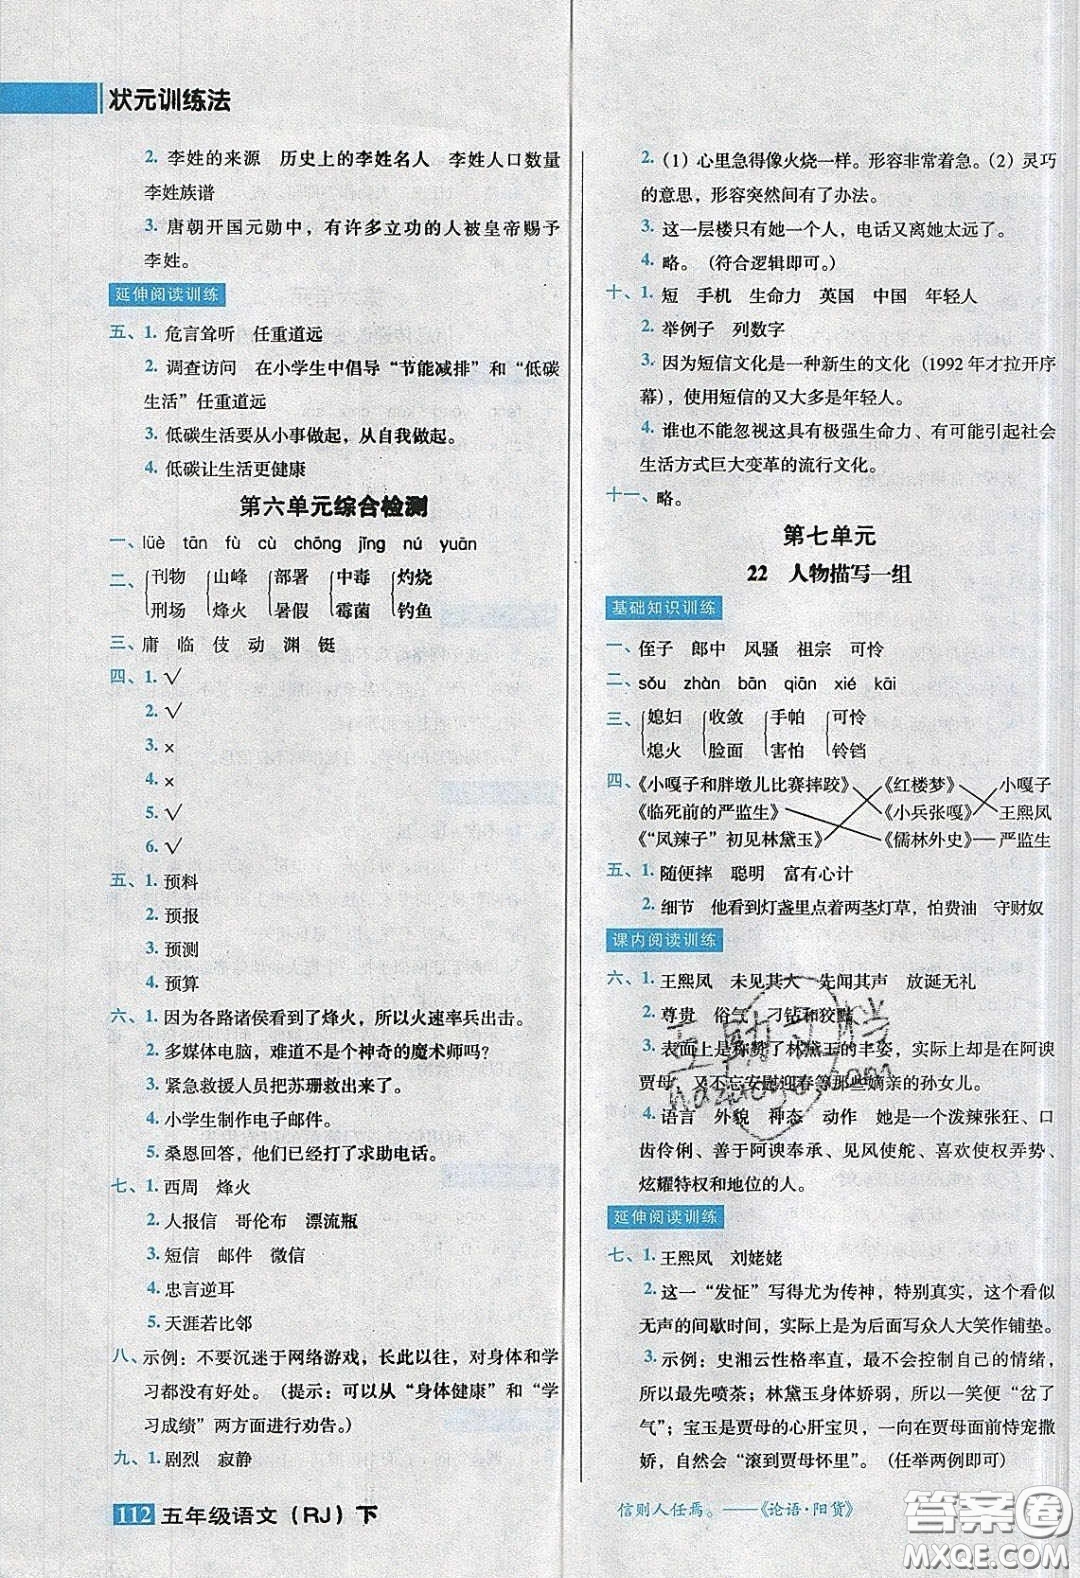 状元训练法
2. 李姓的来源　历史上的李姓名人　李姓人口数量
李姓族谱
3. 唐朝开国元勋中，有许多立功的人被皇帝赐予
李姓。
延伸阅读训练
五、1. 危言耸听　任重道远
2. 调查访问　在小学生中倡导“节能减排”和“低碳
生活”任重道远
3. 低碳生活要从小事做起，从自我做起。
4. 低碳让生活更健康
第六单元综合检测
一、lüè　tān　fù　cù　chōng　jǐng　nú　yuān
二、刊物　山峰　部署　中毒　灼烧
刑场　烽火　暑假　霉菌　钓鱼
三、庸　临　伎　动　渊　铤
四、1. √
2. √
3. ×
4. ×
5. √
6. √
五、1. 预料
2. 预报
3. 预测
4. 预算
六、1. 因为各路诸侯看到了烽火，所以火速率兵出击。
2. 多媒体电脑，难道不是个神奇的魔术师吗？
3. 紧急救援人员把苏珊救出来了。
4. 小学生制作电子邮件。
5. 桑恩回答，他们已经打了求助电话。
七、1. 西周　烽火
2. 人报信　哥伦布　漂流瓶
3. 短信　邮件　微信
4. 忠言逆耳
5. 天涯若比邻
八、示例：不要沉迷于网络游戏，长此以往，对身体和学
习都没有好处。（提示：可以从“身体健康”和“学
习成绩”两方面进行劝告。）
九、1. 剧烈　寂静
112 五年级语文（RJ）下
2.（1）心里急得像火烧一样。形容非常着急。（2）灵巧
的意思，形容突然间有了办法。
3. 这一层楼只有她一个人，电话又离她太远了。
4. 略。（符合逻辑即可。）
十、1. 短　手机　生命力　英国　中国　年轻人
2. 举例子　列数字
3. 因为短信文化是一种新生的文化（1992年才拉开序
幕），使用短信的又大多是年轻人。
4. 谁也不能忽视这具有极强生命力、有可能引起社会
生活方式巨大变革的流行文化。
十一、略。
第七单元
22　人物描写一组
基础知识训练
一、侄子　郎中　风骚　祖宗　可怜
二、sǒu　zhàn　bān　qiān　xié　kāi
三、媳妇　收敛　手帕　可怜
熄火　脸面　害怕　铃铛
四、《小嘎子和胖墩儿比赛摔跤》　《红楼梦》　小嘎子
《临死前的严监生》　《小兵张嘎》　王熙凤
《“凤辣子”初见林黛玉》　《儒林外史》　严监生
五、1. 随便摔　聪明　富有心计
2. 细节　他看到灯盏里点着两茎灯草，怕费油　守财奴
课内阅读训练
六、1. 王熙凤　未见其人　先闻其声　放诞无礼
2. 尊贵　俗气　刁钻和狡黠
3. 表面上是称赞了林黛玉的丰姿，实际上却在阿谀
贾母　又不忘安慰迎春等那些嫡亲的孙女儿。
4. 语言　外貌　神态　动作　她是一个泼辣张狂、口
齿伶俐、善于阿谀奉承、见风使舵、喜欢使权弄势、
炫耀特权和地位的人。
延伸阅读训练
七、1. 王熙凤　刘姥姥
2. 这一“发怔”写得尤为传神，特别真实，这个看似
无声的间歇时间，实际上是为后面写众人大笑作铺垫。
3. 示例：史湘云性格率直，最不会控制自己的情绪，
所以最先喷茶；林黛玉身体娇弱，一笑便“岔了
气”；宝玉是贾母的心肝宝贝，一向在贾母面前恃宠撒
娇，自然会“滚到贾母怀里”。（任举两例即可）
信则人任焉。——《论语·阳货》
答案圈
MXQE.COM